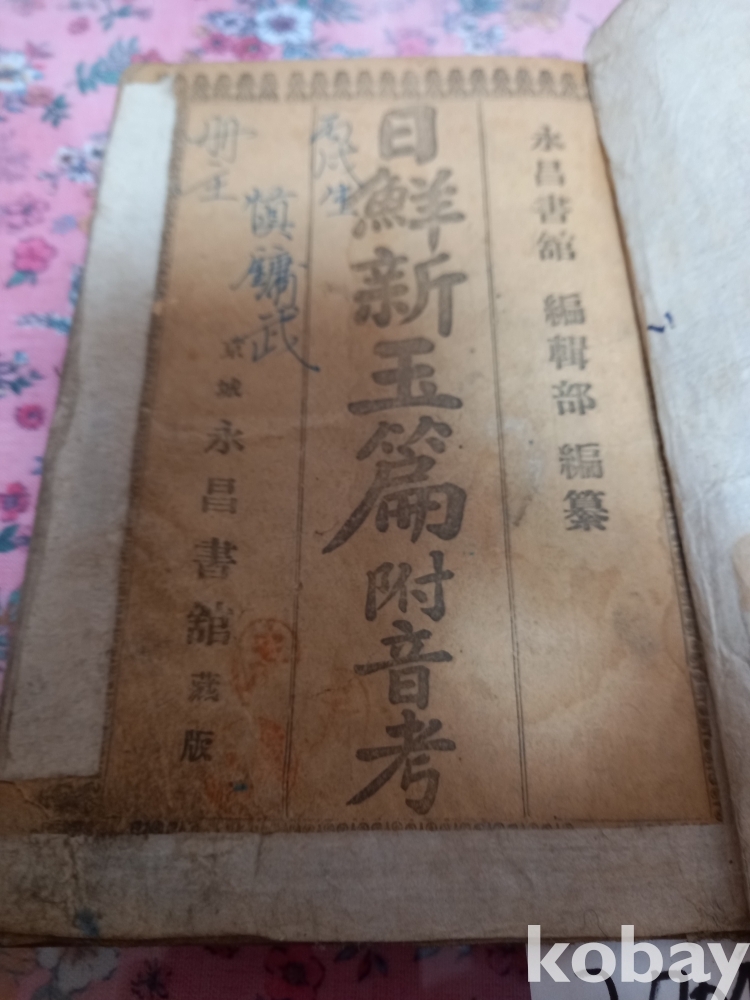 永昌書舘 編輯部 編纂
日鮮新玉篇附音考
丙戌生
冊主
愼鏞武
京城 永昌書舘 蔵版
kobay